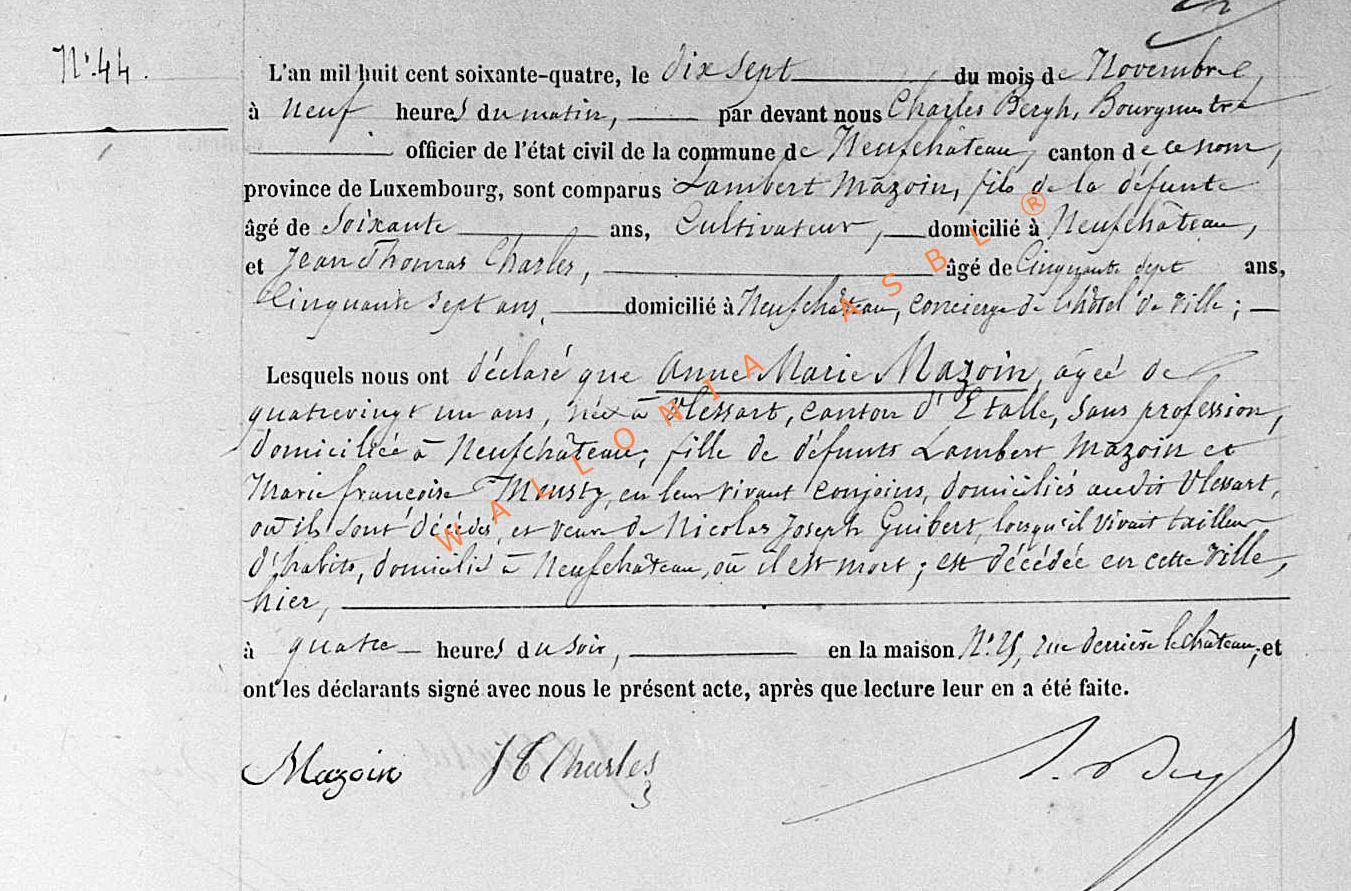 N° 44.
L'an mil huit cent soixante-quatre, le dix sept du mois de Novembre,
à neuf heures du matin, par devant nous Charles Bergh, Bourgmestre
officier de l'état civil de la commune de Neufchâteau, canton de ce nom,
province de Luxembourg, sont comparus Lambert Mazoin, fils de la défunte
âgé de Soixante ans, Cultivateur, domicilié à Neufchâteau,
et Jean Thomas Charles, âgé de Cinquante sept ans,
Cinquante sept ans, domicilié à Neufchâteau, concierge de l'hôtel de ville;
Lesquels nous ont déclaré que Anne Marie Mazoin, agée de
quatrevingt un ans, née à Vlessart, canton d'Etalle, sans profession,
domiciliée à Neufchâteau; fille de défunts Lambert Mazoin et
Marie françoise Meusty, en leur vivant conjoins, domiciliés audit Vlessart,
où ils sont décédés, et veuve de Nicolas Joseph Guibert, lorsqu'il vivait tailleur
d'habits, domicilié à Neufchâteau, où il est mort; est décédée en cette ville,
hier,
à quatre heures du soir, en la maison N° 25, rue derrière le château, et
ont les déclarants signé avec nous le présent acte, après que lecture leur en a été faite.
Mazoin J T Charles
WALLONIA ASBL ®